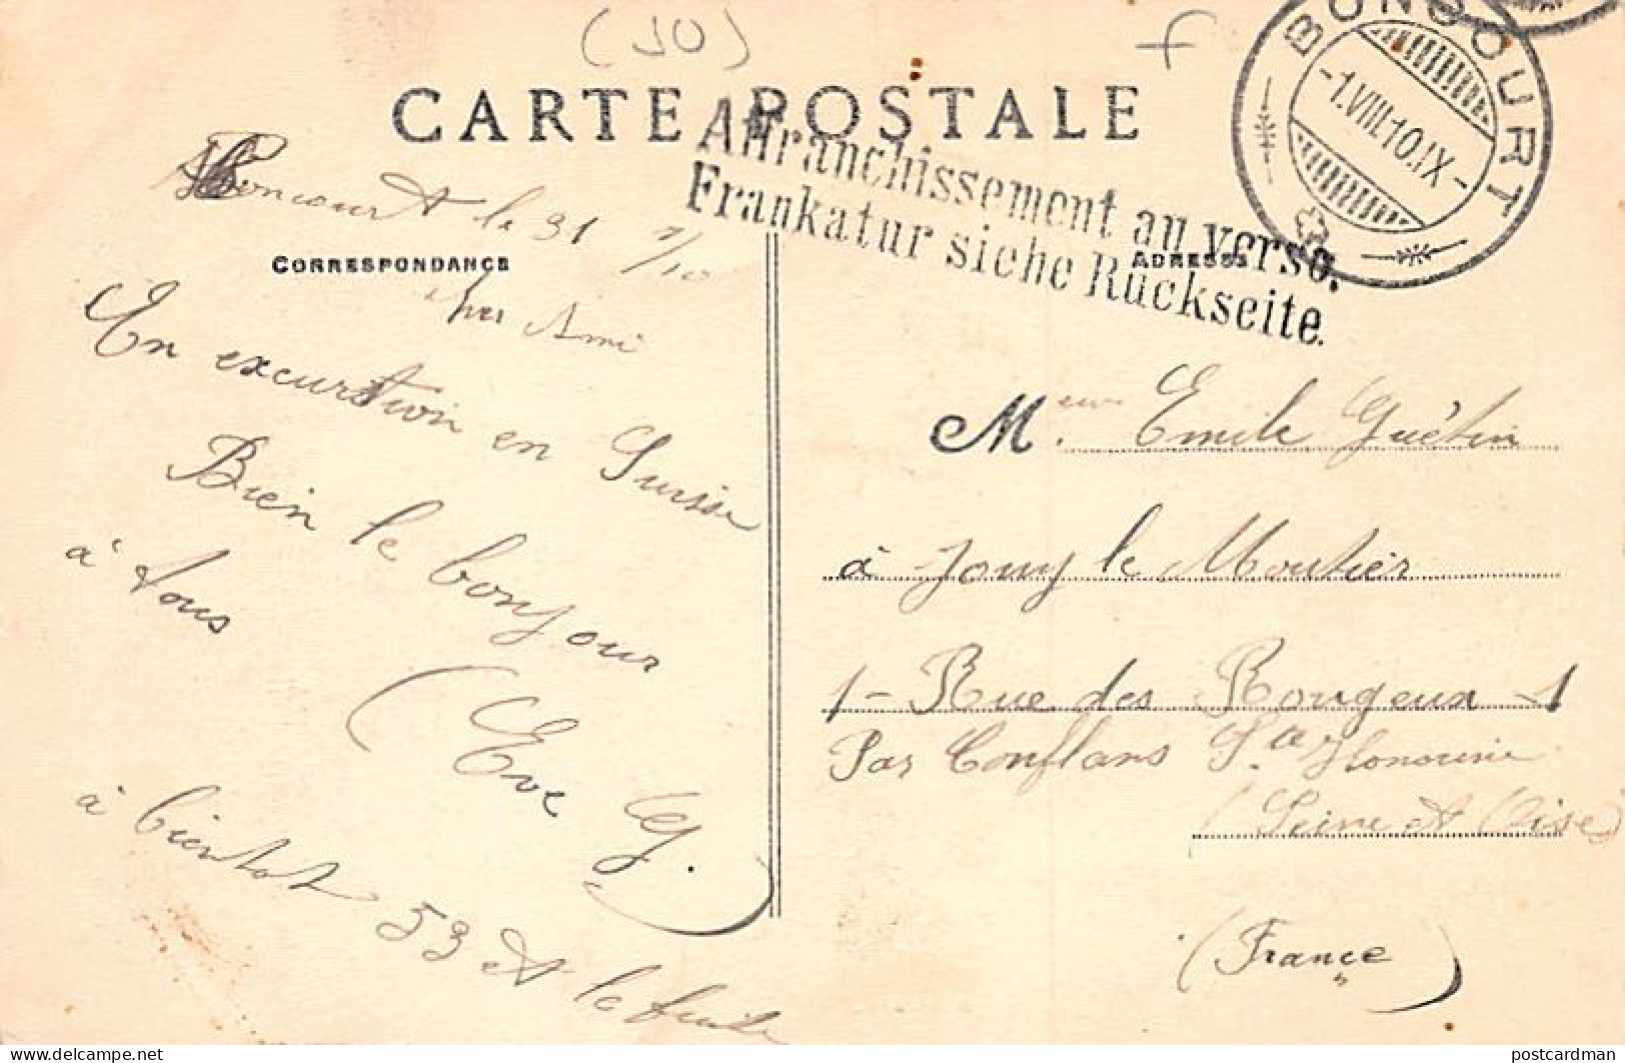 (50)
CARTE POSTALE
BONCOURT
-1.VIII.10.IX-
Affranchissement au verso.
Frankatur siehe Rückseite.
Boncourt le 31 7/10
CORRESPONDANCE
ADRESSE
Cher Ami
En excurtion en Suisse
Bien le bonjour
à tous
à bientot 53 et la fuite
Meur Emile Guétin
à Jouy le Moutier
1- Rue des Rougeux 1
Par Conflans Ste Honorine
(Seine et Oise)
(France)
delcampe.net
postcardman